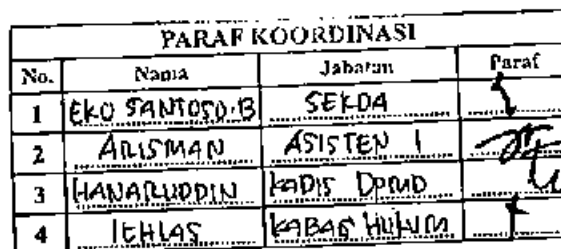 PARAF KOORDINASI
No. Nama Jabatan Paraf
1 EKO SANTOSO.B SEKDA
2 ARISMAN ASISTEN I
3 HANARUDDIN KADIS DPMD
4 ICHLAS KABAG HUKUM